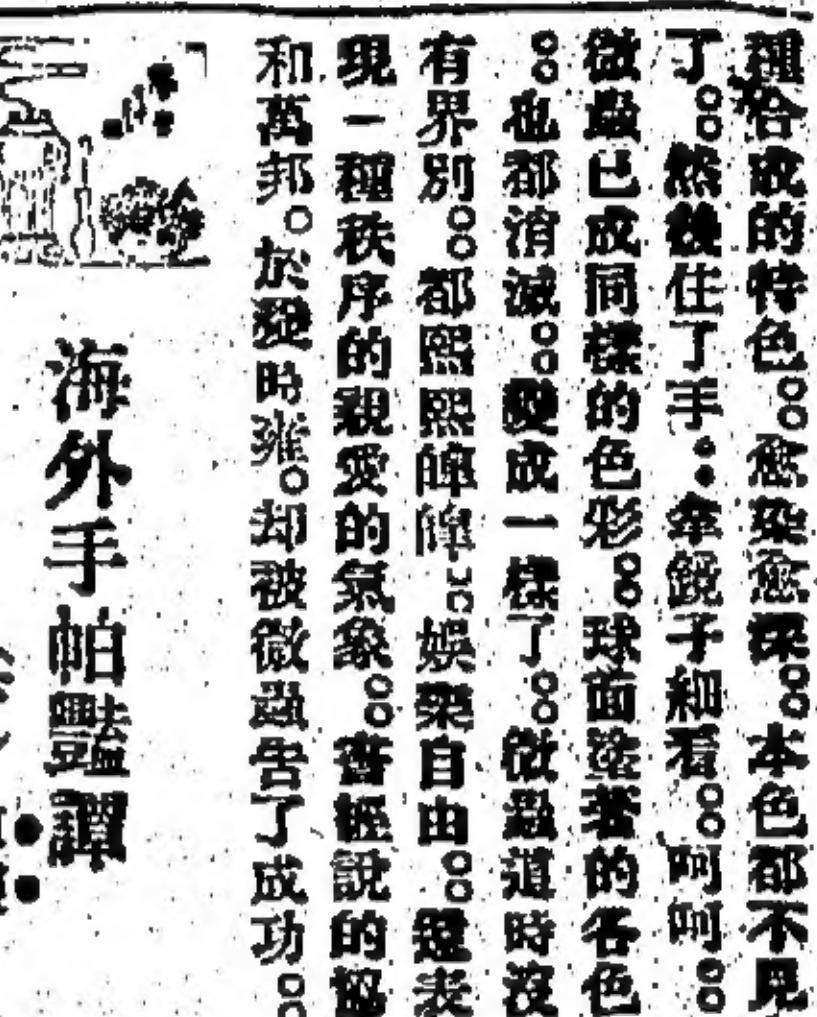 種合成的特色。愈染愈深。本色都不見
了。然後住了手。拿鏡子細看。呵呵。
微蟲已成同樣的色彩。球面塗著的各色
。也都消滅。變成一樣了。微蟲這時沒
有界別。都熙熙皞皞。娛樂自由。還表
現一種秩序的親愛的氣象。書經說的協
和萬邦。於變時雍。却被微蟲告了成功。
海外手帕豔譚